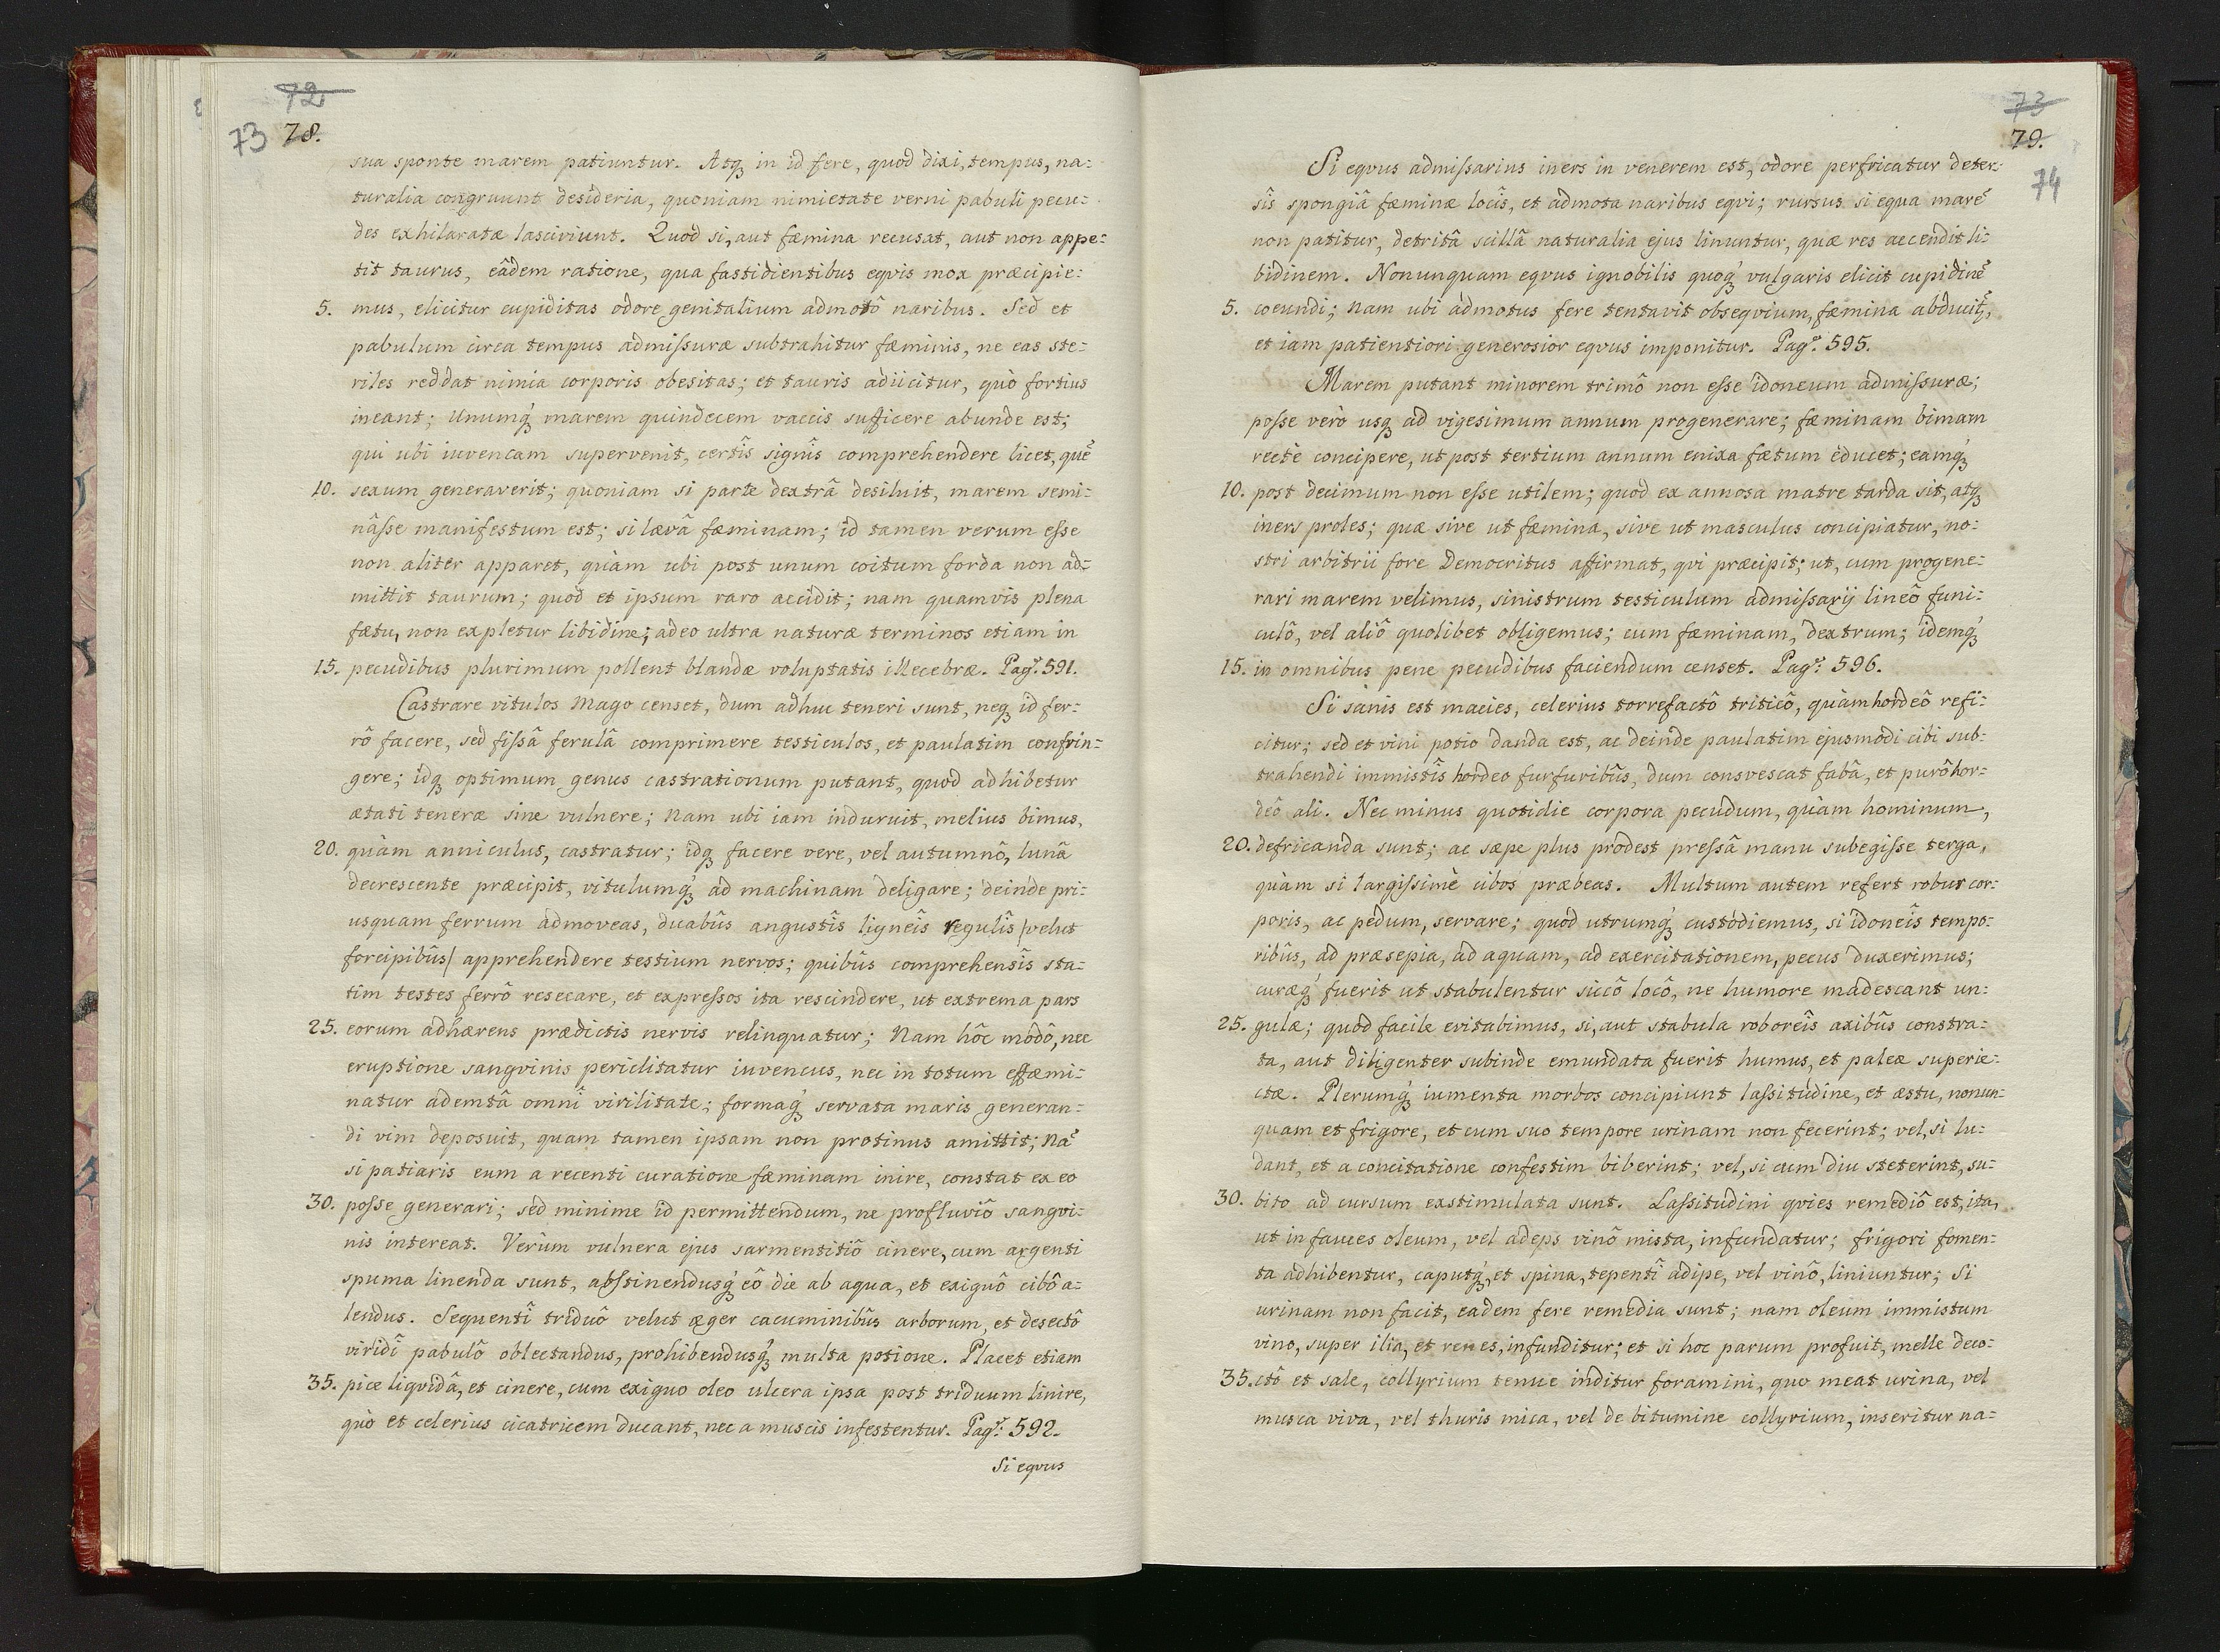 72
73 78.
sua sponte marem patiuntur. Atq3 in id fere, quod dixi, tempus, na:
turalia congruunt desideria, quoniam nimietate verni pabuli pecu:
des exhilaratæ lasciviunt. Quod si, aut fæmina recusat, aut non appe:
tit taurus, eâdem ratione, qua fastidientibus eqvis mox præcipie:
5. mus, elicitur cupiditas odore genitalium admotô naribus. Sed et
pabulum circa tempus admissuræ subtrahitur fæminis, ne eas ste:
riles reddat nimia corporis obesitas; et tauris adiicitur, quò fortius
ineant; Unumq3 marem quindecem vaccis sufficere abunde est;
qui ubi iuvencam supervenit, certîs signîs comprehendere licet, quẽ
10. sexum generaverit; quoniam si parte dextrâ desiluit, marem semi:
nâsse manifestum est; si lævâ fæminam; id tamen verum esse
non aliter apparet, quàm ubi post unum coitum forda non ad:
mittit taurum; quod et ipsum raro accidit; nam quamvis plena
fætu, non expletur libidine; adeo ultra naturæ terminos etiam in
15. pecudibus plurimum pollent blandæ voluptatis illecebræ. Pagᵃ: 591.
Castrare vitulos Mago censet, dum adhuc teneri sunt, neq3 id fer:
rô facere, sed fissâ ferulâ comprimere testiculos, et paulatim confrin:
gere; idq3 optimum genus castrationum putant, quod adhibetur
ætati teneræ sine vulnere; Nam ubi iam induruit, melius bimus,
20. quàm anniculus, castratur; idq3 facere vere, vel autumnô, lunâ
decrescente præcipit, vitulumq3 ad machinam deligare; deinde pri:
usquam ferrum admoveas, duabûs angustîs ligneîs regulîs /velut
forcipibûs/ apprehendere testium nervos; quibûs comprehensîs sta:
tim testes ferrô resecare, et expressos ita rescindere, ut extrema pars
25. eorum adhærens prædictis nervis relinquatur; Nam hôc modô, nec
eruptione sangvinis periclitatur iuvencus, nec in totum effæmi:
natur ademtâ omnî virilitate; formaq3 servata maris generan:
di vim deposuit, quam tamen ipsam non protinus amittit; Nã
si patiaris eum a recenti curatione fæminam inire, constat ex eo
30. posse generari; sed minime id permittendum, ne profluviô sangvi:
nis intereat. Verùm vulnera ejus sarmentitiô cinere, cum argenti
spuma linenda sunt, abstinendusq3 eô die ab aqua, et exiguô cibô a:
lendus. Sequentî triduô velut æger cacuminibûs arborum, et desectô
viridî pabulô oblectandus, prohibendusq3 multa potione. Placet etiam
35. pice liqvidâ, et cinere, cum exiguo oleo ulcera ipsa post triduum linire,
quò et celerius cicatricem ducant, nec a muscis infestentur. Pagᵃ: 592.
Si eqvus
73
79.
74
Si eqvus admissarius iners in venerem est, odore perfricatur deter:
sîs spongiâ fæminæ locîs, et admota naribus eqvi; rursus si equa marẽ
non patitur, detritâ scillâ naturalia ejus linuntur, quæ res accendit li:
bidinem. Nonunquam eqvus ignobilis quoq3 vulgaris elicit cupidinẽ
5. coeundi; nam ubi admotus fere tentavit obseqvium, fæmina abducit3,
et iam patientiori generosior eqvus imponitur. Pagᵃ: 595.
Marem putant minorem trimô non esse idoneum admissuræ;
posse verò usq3 ad vigesimum annum progenerare; fæminam bimam
rectè concipere, ut post tertium annum enixa fætum educet; eamq3
10. post decimum non esse utilem; quod ex annosa matre tarda sit, atq3
iners proles; quæ sive ut fæmina, sive ut masculus concipiatur, no:
stri arbitrii fore Democritus affirmat, qvi præcipit; ut, cum progene:
rari marem velimus, sinistrum testiculum admissarij lineô funi:
culô, vel aliô quolibet obligemus; cum fæminam, dextrum; idemq3
15. in omnibus pene pecudibus faciendum censet. Pagᵃ: 596.
Si sanis est macies, celerius torrefactô triticô, quàm hordeô refi:
citur; sed et vini potio danda est, ac deinde paulatim ejusmodi cibi sub:
trahendi immistîs hordeo furfuribûs, dum consvescat fabâ, et purô hor:
deô ali. Nec minus quotidie corpora pecudum, quàm hominum,
20. defricanda sunt; ac sæpe plus prodest pressâ manu subegisse terga,
quàm si largissimè cibos præbeas. Multum autem refert robur cor:
poris, ac pedum, servare; quod utrumq3 custodiemus, si idoneîs tempo:
ribûs, ad præsepia, ad aquam, ad exercitationem, pecus duxerimus;
curæq3 fuerit ut stabulentur siccô locô, ne humore madescant un:
25. gulæ; quod facile evitabimus, si, aut stabula roboreîs axibûs constra:
ta, aut diligenter subinde emundata fuerit humus, et paleæ superie:
ctæ. Plerumq3 iumenta morbos concipiunt lassitudine, et æstu, nonun:
quam et frigore, et cum suo tempore urinam non fecerint; vel, si lu:
dant, et a concitatione confestim biberint; vel, si cum diu steterint, su:
30. bito ad cursum exstimulata sunt. Lassitudini qvies remediô est, ita,
ut in fauces oleum, vel adeps vinô mista, infundatur; frigori fomen:
ta adhibentur, caputq3, et spina, tepentî adipe, vel vinô, liniuntur; Si
urinam non facit, eadem fere remedia sunt; nam oleum immistum
vino, super ilia, et renes, infunditur; et si hoc parum profuit, melle deco:
35. ctô et sale, collyrium tenue inditur foramini, quo meat urina, vel
musca viva, vel thuris mica, vel de bitumine collyrium, inseritur na: